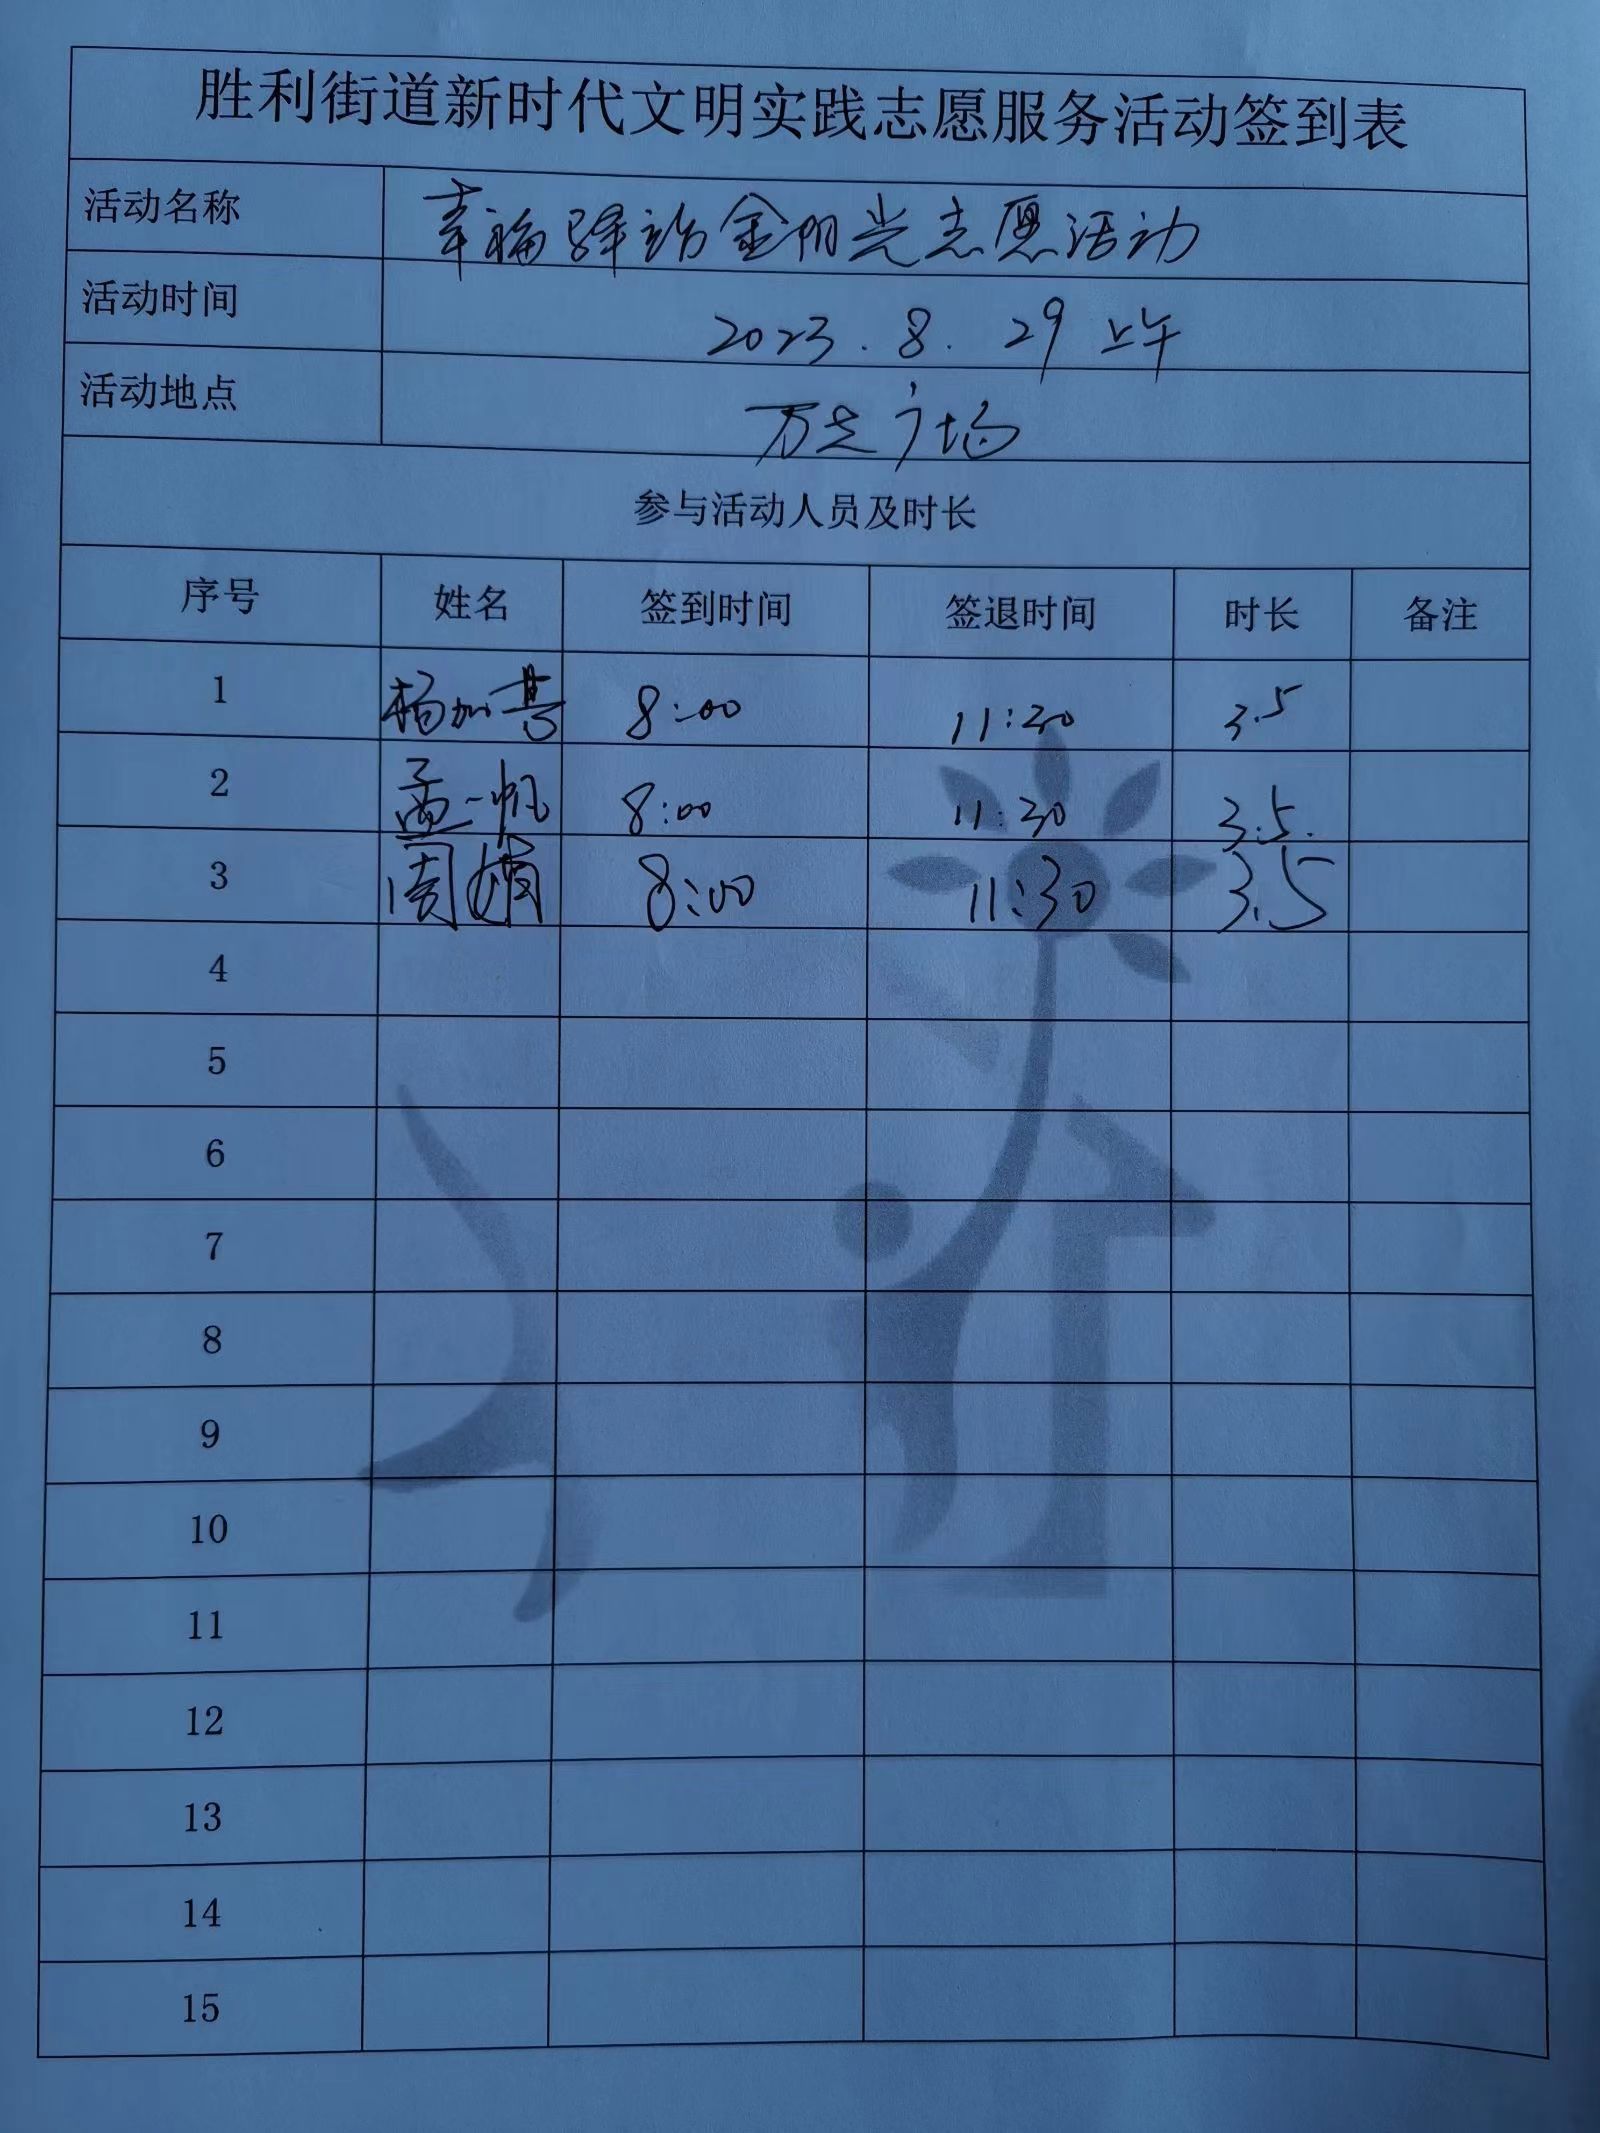 胜利街道新时代文明实践志愿服务活动签到表
活动名称 幸福驿站金阳光志愿活动
活动时间 2023.8.29 上午
活动地点 万达广场
参与活动人员及时长
序号 姓名 签到时间 签退时间 时长 备注
1 杨加 8:00 11:30 3.5
2 孟一帆 8:00 11:30 3.5.
3 周婧 8:00 11:30 3.5
4
5
6
7
8
9
10
11
12
13
14
15